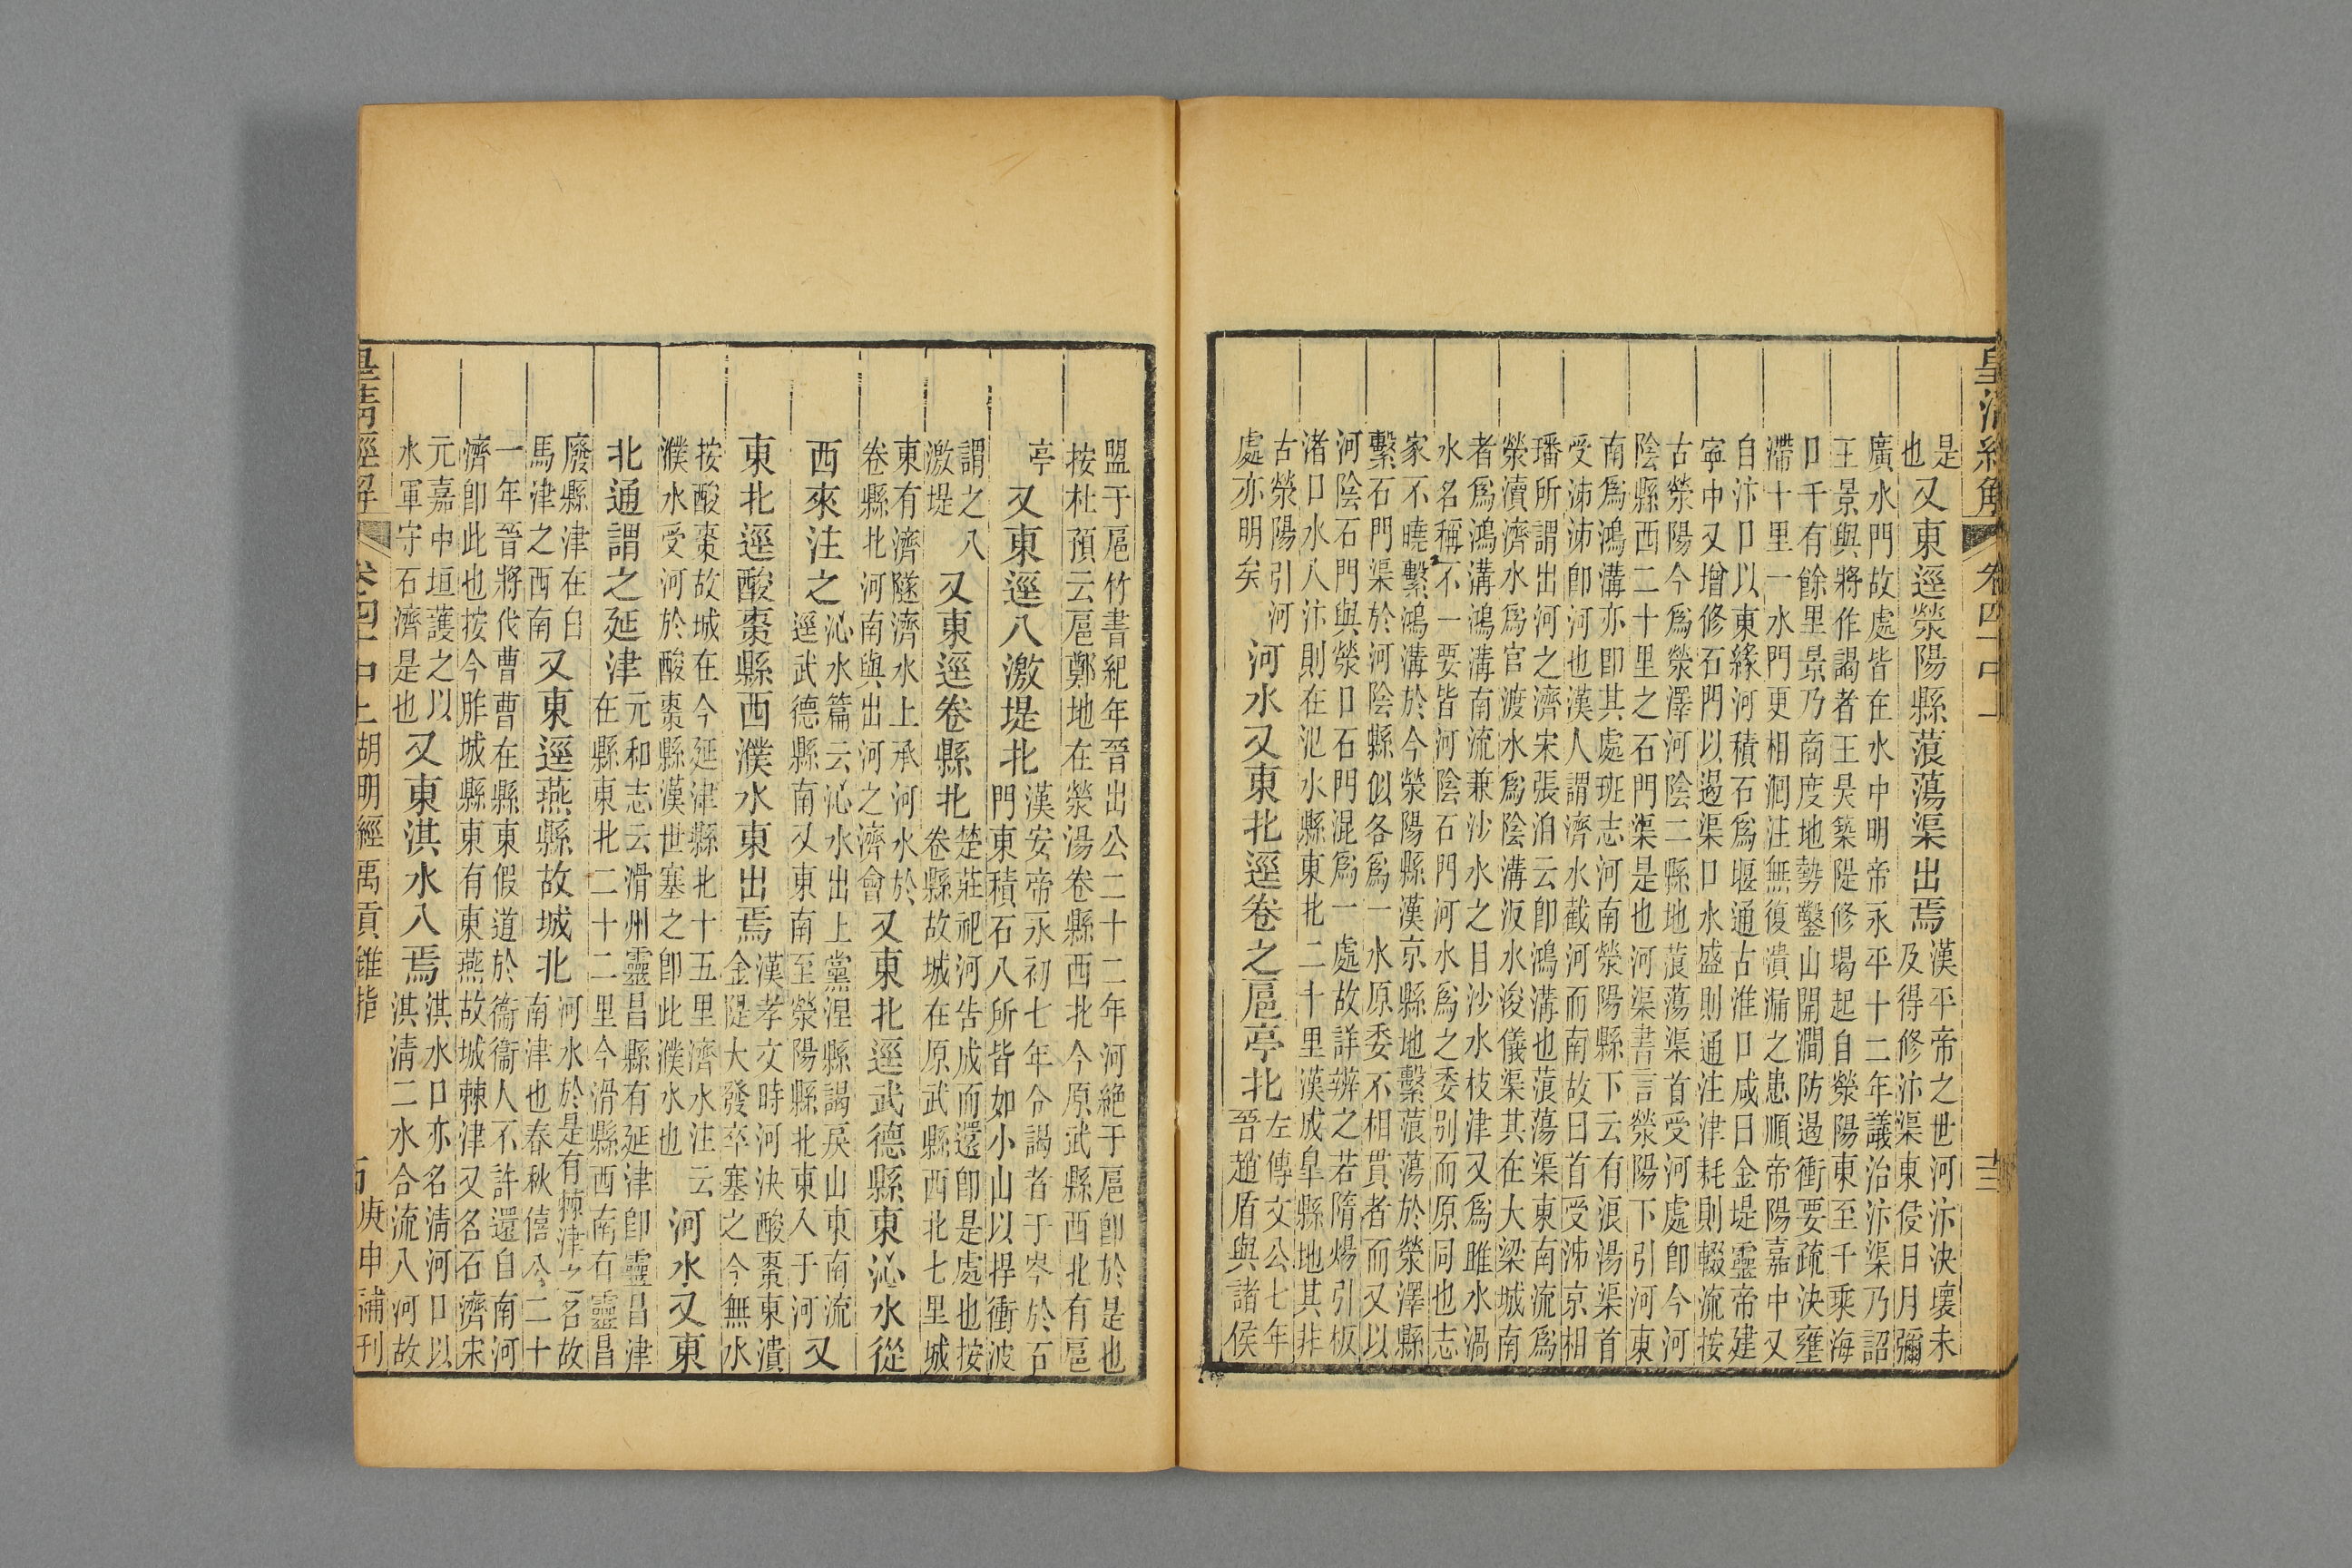 皇清經解 卷四十中上 三
是
也
又東逕滎陽縣蒗蕩渠出焉
漢平帝之世河汴決壞未
及得修汴渠東侵日月彌
廣水門故處皆在水中明帝永平十二年議治汴渠乃詔
王景與將作謁者王吳築隄修堨起自滎陽東至千乘海
口千有餘里景乃商度地勢鑿山開澗防遏衝要疏決壅
滯十里一水門更相洄注無復潰漏之患順帝陽嘉中又
自汴口以東緣河積石爲堰通古淮口咸曰金堤靈帝建
寧中又增修石門以遏渠口水盛則通注津耗則輟流按
古滎陽今爲滎澤河陰二縣地蒗蕩渠首受河處卽今河
陰縣西二十里之石門渠是也河渠書言滎陽下引河東
南爲鴻溝亦卽其處班志河南滎陽縣下云有浪湯渠首
受泲泲卽河也漢人謂濟水截河而南故曰首受泲京相
璠所謂出河之濟宋張洎云卽鴻溝也蒗蕩渠東南流爲
滎瀆濟水爲官渡水爲陰溝汳水浚儀渠其在大梁城南
者爲鴻溝鴻溝南流兼沙水之目沙水枝津又爲雎水渦
水名稱不一要皆河陰石門河水爲之委别而原同也志
家不曉繫鴻溝於今滎陽縣漢京縣地繫蒗蕩於滎澤縣
繫石門渠於河陰縣似各爲一水原委不相貫者而又以
河陰石門與滎口石門混爲一處故詳辨之若隋煬引板
渚口水入汴則在汜水縣東北二十里漢成臯縣地其非
古滎陽引河
處亦明矣
河水又東北逕卷之扈亭北
左傳文公七年
晉趙盾與諸侯
盟于扈竹書紀年晉出公二十二年河絕于扈卽於是也
按杜預云扈鄭地在滎陽卷縣西北今原武縣西北有扈
亭
又東逕八激堤北
漢安帝永初七年令謁者于岑於石
門東積石八所皆如小山以捍衝波
謂之八
激堤
又東逕卷縣北
楚莊祀河告成而還卽是處也按
卷縣故城在原武縣西北七里城
東有濟隧濟水上承河水於
卷縣北河南與出河之濟會
又東北逕武德縣東沁水從
西來注之
沁水篇云沁水出上黨涅縣謁戾山東南流
逕武德縣南又東南至滎陽縣北東入于河
又
東北逕酸棗縣西濮水東出焉
漢孝文時河決酸棗東潰
金隄大發卒塞之今無水
按酸棗故城在今延津縣北十五里濟水注云
濮水受河於酸棗縣漢世塞之卽此濮水也
河水又東
北通謂之延津
元和志云滑州靈昌縣有延津卽靈昌津
在縣東北二十二里今滑縣西南有靈昌
廢縣津在白
馬津之西南
又東逕燕縣故城北
河水於是有棘津之名故
南津也春秋僖公二十
一年晉將伐曹曹在縣東假道於衞衞人不許還自南河
濟卽此也按今胙城縣東有東燕故城棘津又名石濟宋
元嘉中垣護之以
水軍守石濟是也
又東淇水入焉
淇水口亦名清河口以
淇淸二水合流入河故
皇清經解 卷四十中上 胡明經禹貢錐指 庚申補刊